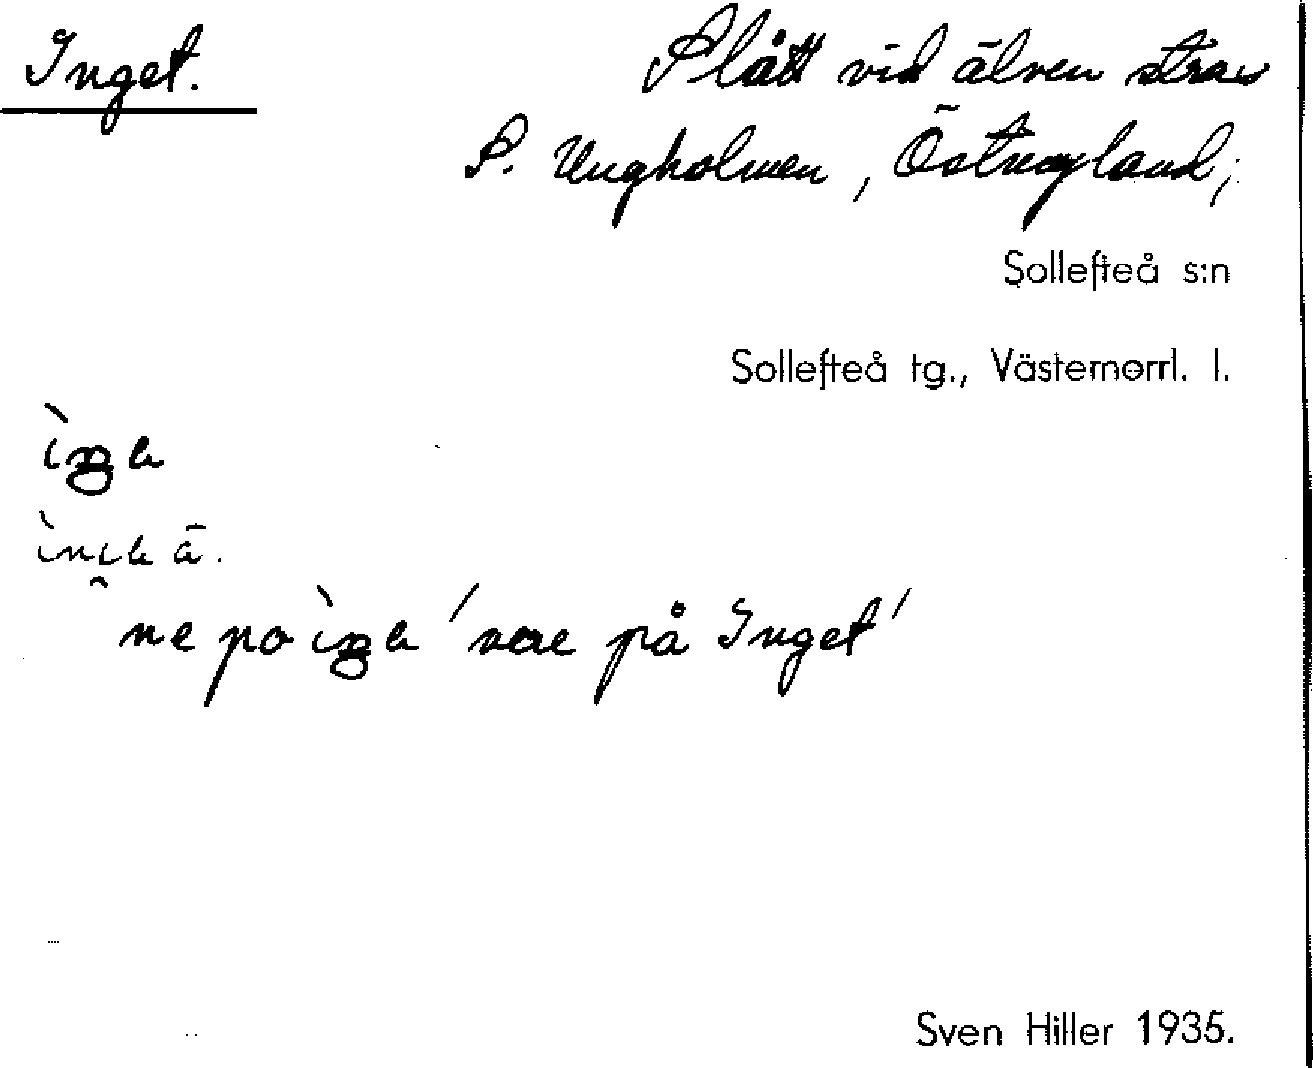 Inget.
Slått vid älven strax
S. Ungholmen, Östnyland;
Sollefteå s:n
Sollefteå tg., Västernorrl. l.
nere på Inget'
Sven Hiller 1935.